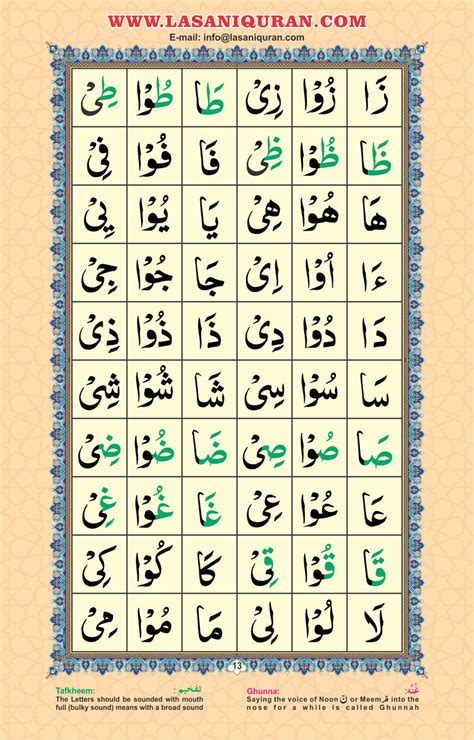 WWW.LASANIQURAN.COM
E-mail: info@lasaniquran.com
زَا زُوْا زِىْ طَا طُوْا طِىْ
ظَا ظُوْا ظِىْ فَا فُوْا فِىْ
هَا هُوْا هِىْ يَا يُوْا يِىْ
ءَا اُوْا اِىْ جَا جُوْا جِىْ
دَا دُوْا دِىْ ذَا ذُوْا ذِىْ
سَا سُوْا سِىْ شَا شُوْا شِىْ
صَا صُوْا صِىْ ضَا ضُوْا ضِىْ
عَا عُوْا عِىْ غَا غُوْا غِىْ
قَا قُوْا قِىْ كَا كُوْا كِىْ
لَا لُوْا لِىْ مَا مُوْا مِىْ
13
Tafkheem: تفخيم:
The Letters should be sounded with mouth
full (bulky sound) means with a broad sound
Ghunna: غُنّه:
Saying the voice of Noon ن or Meem م into the
nose for a while is called Ghunnah